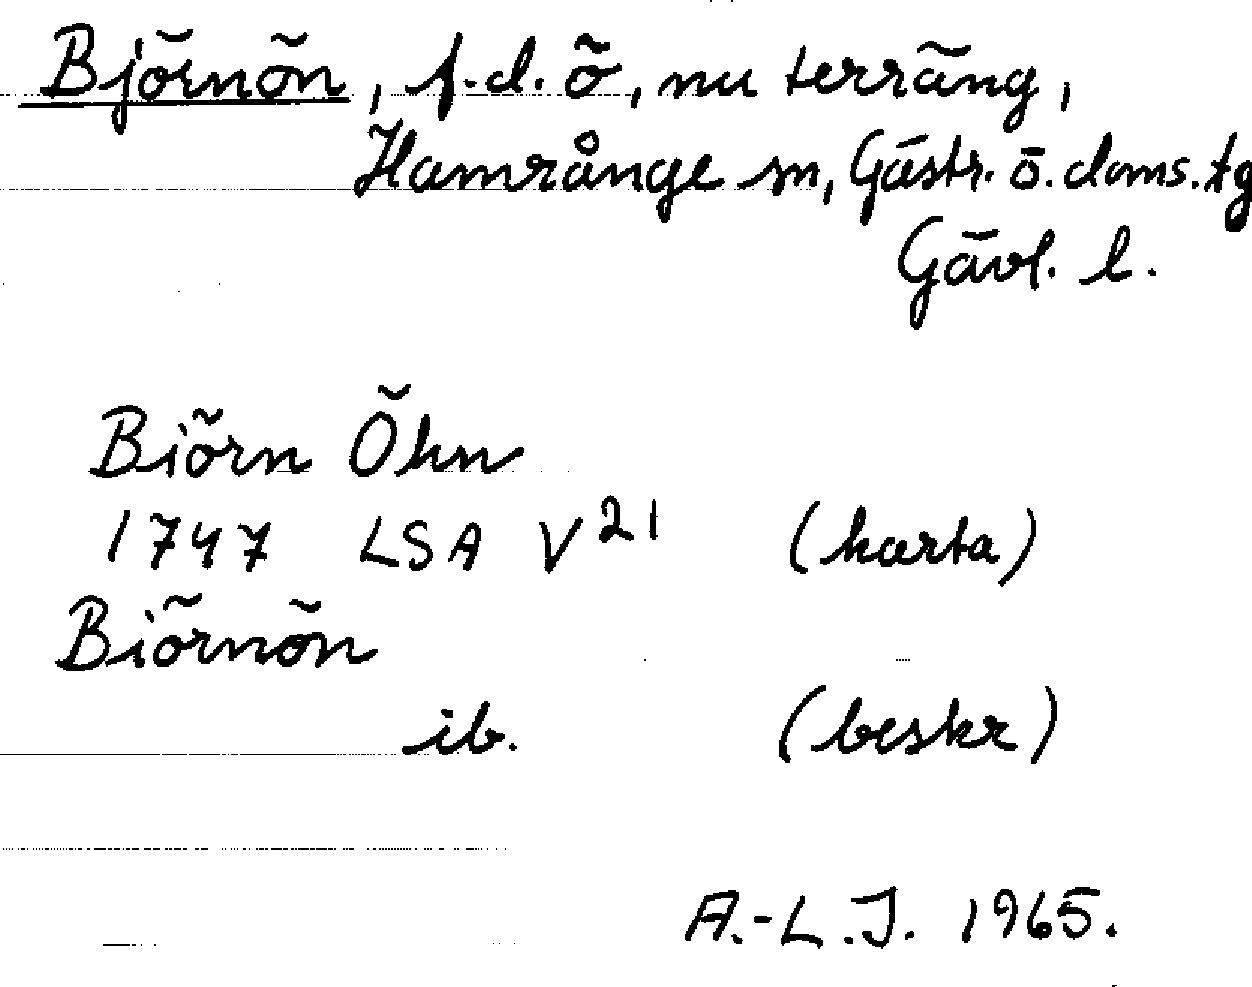 Björnön, f.d. ö, nu terräng,
Hamrånge sn, Gästr. ö. doms. tg
Gävl. l.
Biörn Öhn
1747 LSA V²¹ (karta)
Biörnön
ib. (beskr)
A.-L.J. 1965.